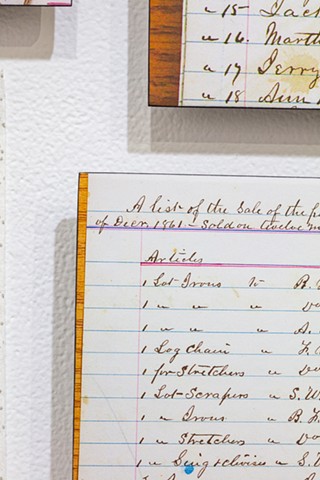 " 15 Jack
" 16. Marth
" 17 Jerry
" 18 Ann
A list of the Sale of the p
of Decr 1861 - Sold on twelve m
Articles
1 Lot Irons to B.
1 " " "
1 " " " A.
1 Log chain " F.
1 for Stretchers " Do
1 Lot Scrapers " S. W
1 " Irons " B. F
1 " Stretchers " Do
1 " & Clivises " S.